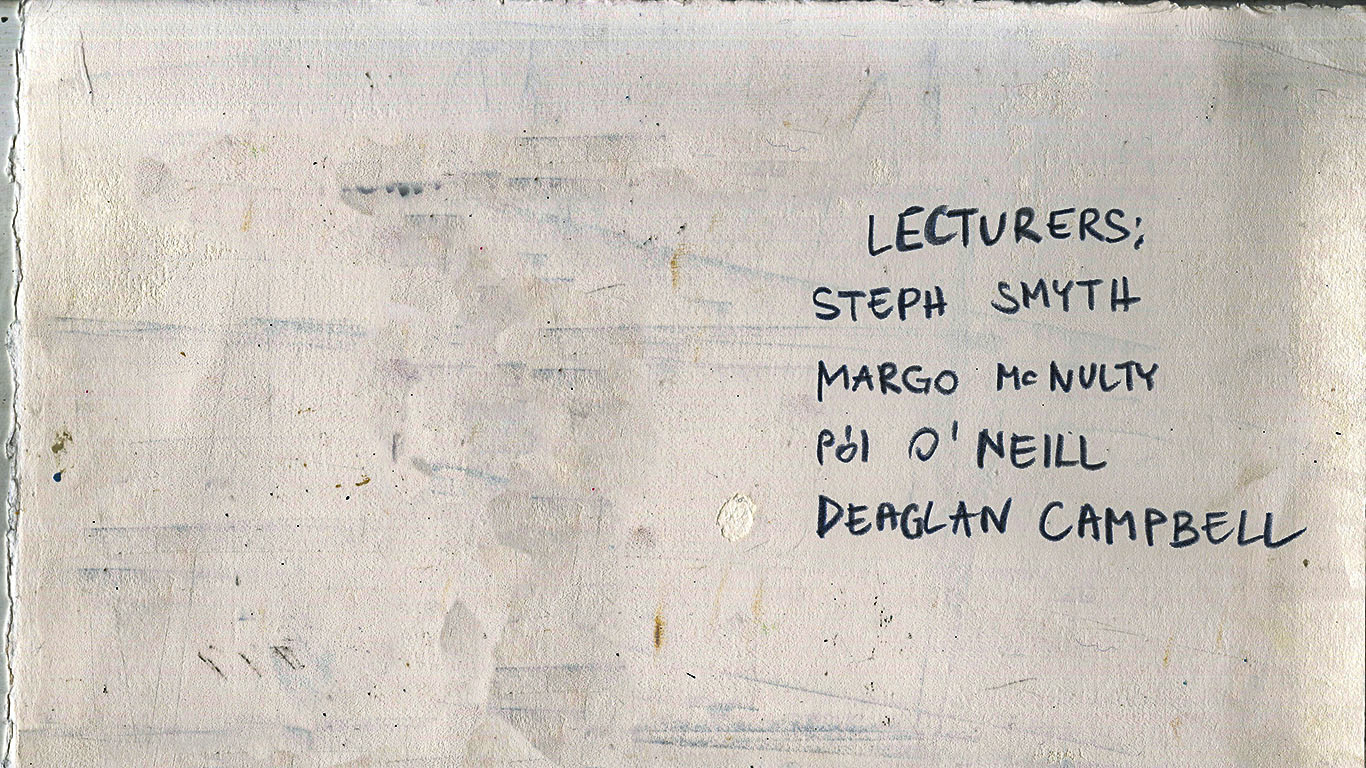 LECTURERS;
STEPH SMYTH
MARGO McNULTY
Pól O'NEILL
DEAGLAN CAMPBELL